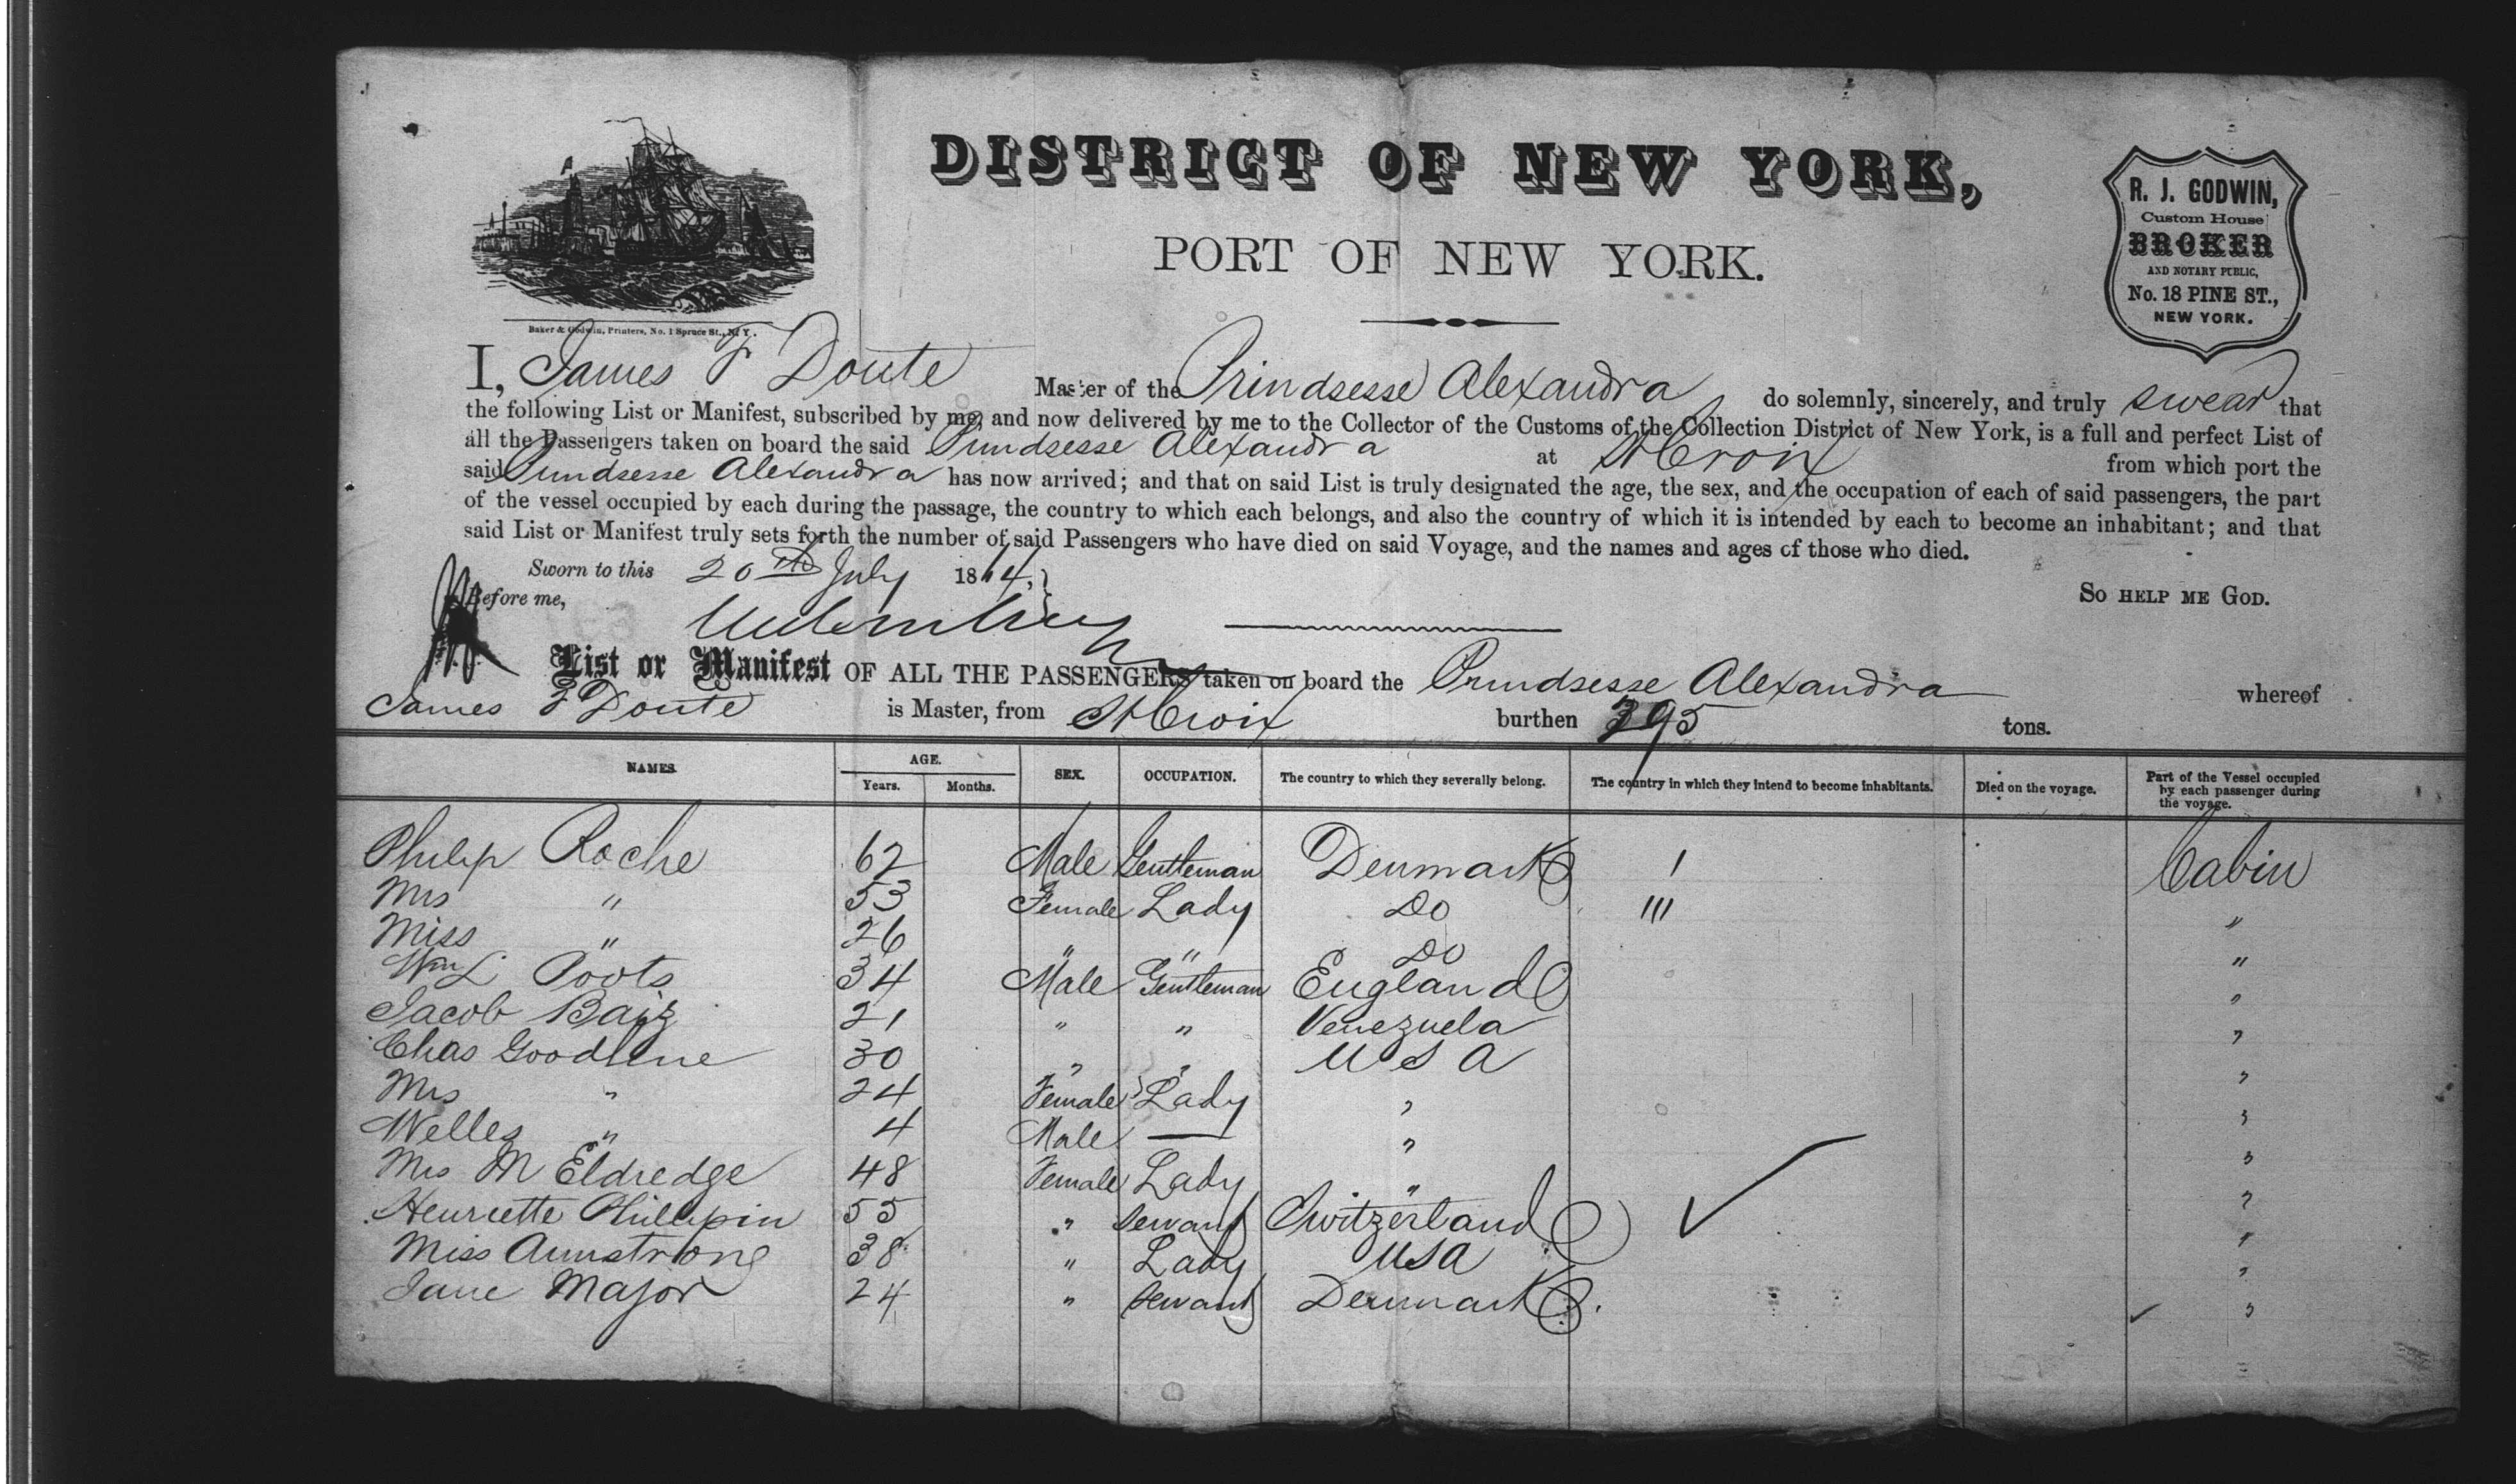 DISTRICT OF NEW YORK,
PORT OF NEW YORK.
R. J. GODWIN,
Custom House
BROKER
AND NOTARY PUBLIC,
No. 18 PINE ST.,
NEW YORK.
Baker & Godwin, Printers, No. 1 Spruce St., N. Y.
I, James F Doute Master of the Prindsesse Alexandra do solemnly, sincerely, and truly swear that
the following List or Manifest, subscribed by me, and now delivered by me to the Collector of the Customs of the Collection District of New York, is a full and perfect List of
all the Passengers taken on board the said Prindsesse Alexandra at St Croix from which port the
said Prindsesse Alexandra has now arrived; and that on said List is truly designated the age, the sex, and the occupation of each of said passengers, the part
of the vessel occupied by each during the passage, the country to which each belongs, and also the country of which it is intended by each to become an inhabitant; and that
said List or Manifest truly sets forth the number of said Passengers who have died on said Voyage, and the names and ages of those who died.
Sworn to this 20th July 1864,
So HELP ME GOD.
Before me,
List or Manifest OF ALL THE PASSENGERS taken on board the Prindsesse Alexandra whereof
James F Doute is Master, from St Croix burthen 395 tons.
NAMES. AGE. SEX. OCCUPATION. The country to which they severally belong. The country in which they intend to become inhabitants. Died on the voyage. Part of the Vessel occupied by each passenger during the voyage.
Years. Months.
Philip Roche 62 Male Gentleman Denmark / Cabin
Mrs " 53 Female Lady Do /// "
Miss " 26 " " Do "
Wm L Poots 34 Male Gentleman England "
Jacob Baiz 21 " " Venezuela "
Chas Goodlene 30 " " U S A "
Mrs " 24 Female Lady " "
Welles " 4 Male — " "
Mrs M Eldredge 48 Female Lady " "
Henriette Phillipin 55 " Servant Switzerland "
Miss Armstrong 38 " Lady USA "
Jane Major 24 " Servant Denmark "